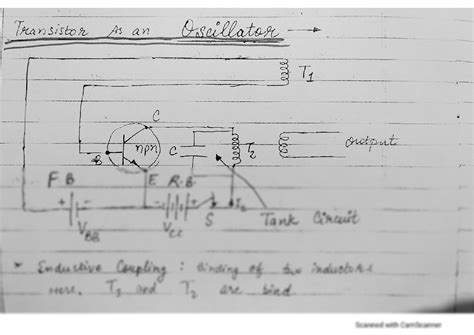 Transistor As an Oscillator →
T1
C
B
npn
C
T2
output
F.B
E
R.B
+ -
- +
S
T2
VBB
VCC
Tank Circuit
* Inductive Coupling : Binding of two inductors
Here, T1 and T2 are bind.
Scanned with CamScanner